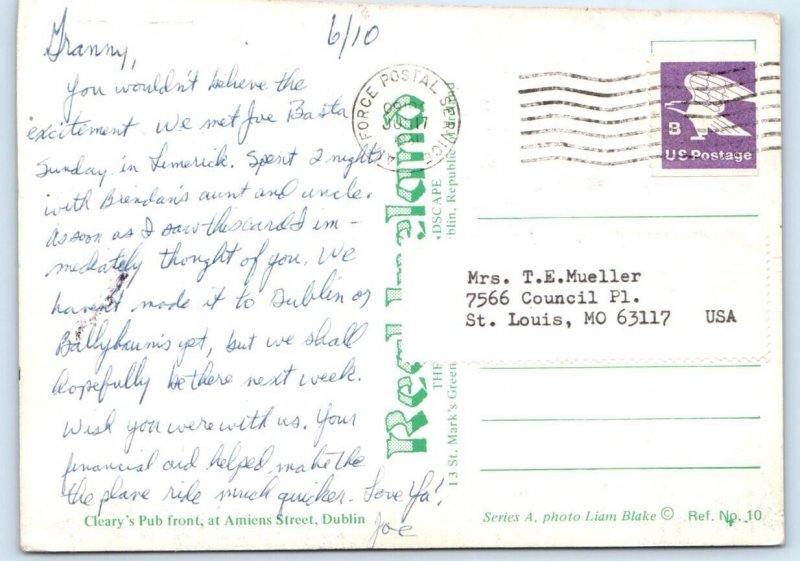 Granny,
6/10
You wouldn't believe the
excitement. We met Joe Basta
Sunday in Limerick. Spent 2 nights
with Brendan's aunt and uncle.
As soon as I saw this card I im-
mediately thought of you. We
haven't made it to Dublin or
yet, but we shall
hopefully be there next week.
Wish you were with us. Your
financial aid helped make the
the plane ride much quicker. Love Ya!
Joe
Cleary's Pub front, at Amiens Street, Dublin
FORCE POSTAL SERVICE
17
B
US Postage
Mrs. T.E.Mueller
7566 Council Pl.
St. Louis, MO 63117 USA
THE
DSCAPE
13 St. Mark's Green
blin, Republic
Series A, photo Liam Blake © Ref. No. 10